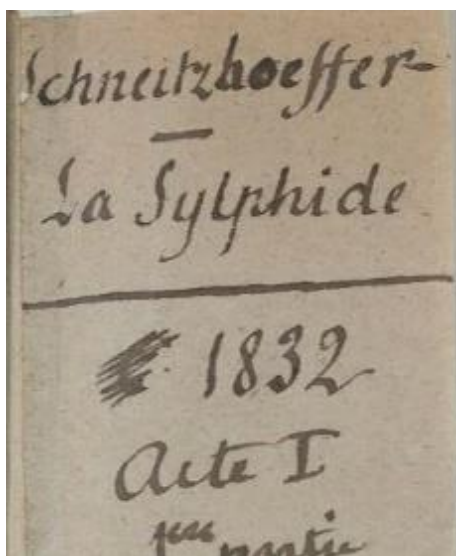 Schneitzhoeffer
—
La Sylphide
1832
Acte I
1ère partie